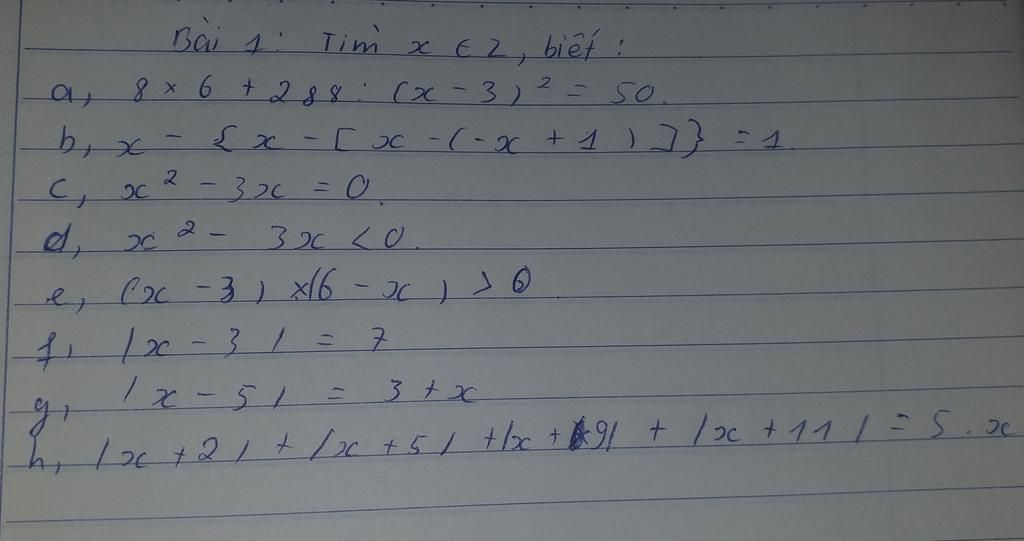 Bài 1: Tìm x ∈ Z, biết:
a, 8 × 6 + 288 : (x - 3)² = 50.
b, x - {x - [x - (-x + 1)]} = 1.
c, x² - 3x = 0.
d, x² - 3x < 0.
e, (x - 3) × (6 - x) > 0
f, |x - 3| = 7
g, |x - 5| = 3 + x
h, |x + 2| + |x + 5| + |x + 9| + |x + 11| = 5 . x